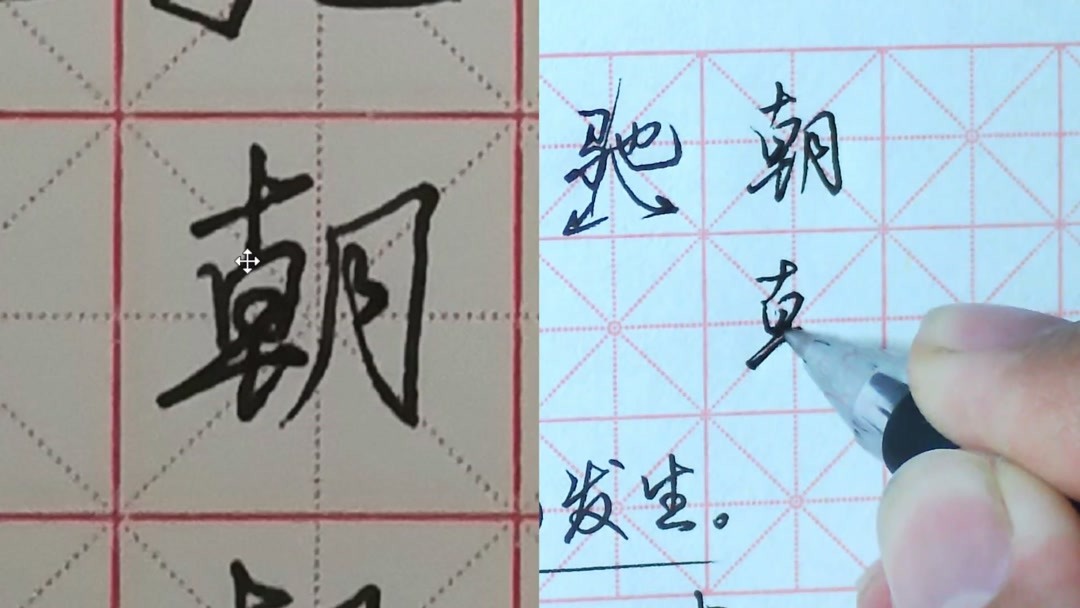 朝
驰朝
发生。